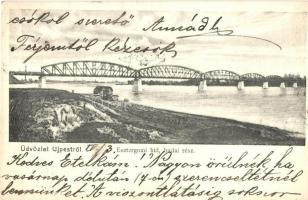 csókol szerető Annád
Férjemtől kézcsók
Üdvözlet Ujpestről. Esztergomi híd, budai rész.
Kedves Etelkám! Nagyon örülnénk ha
vasárnap délután szerencseltetnél
bennünket. A viszontlátásig sokszor